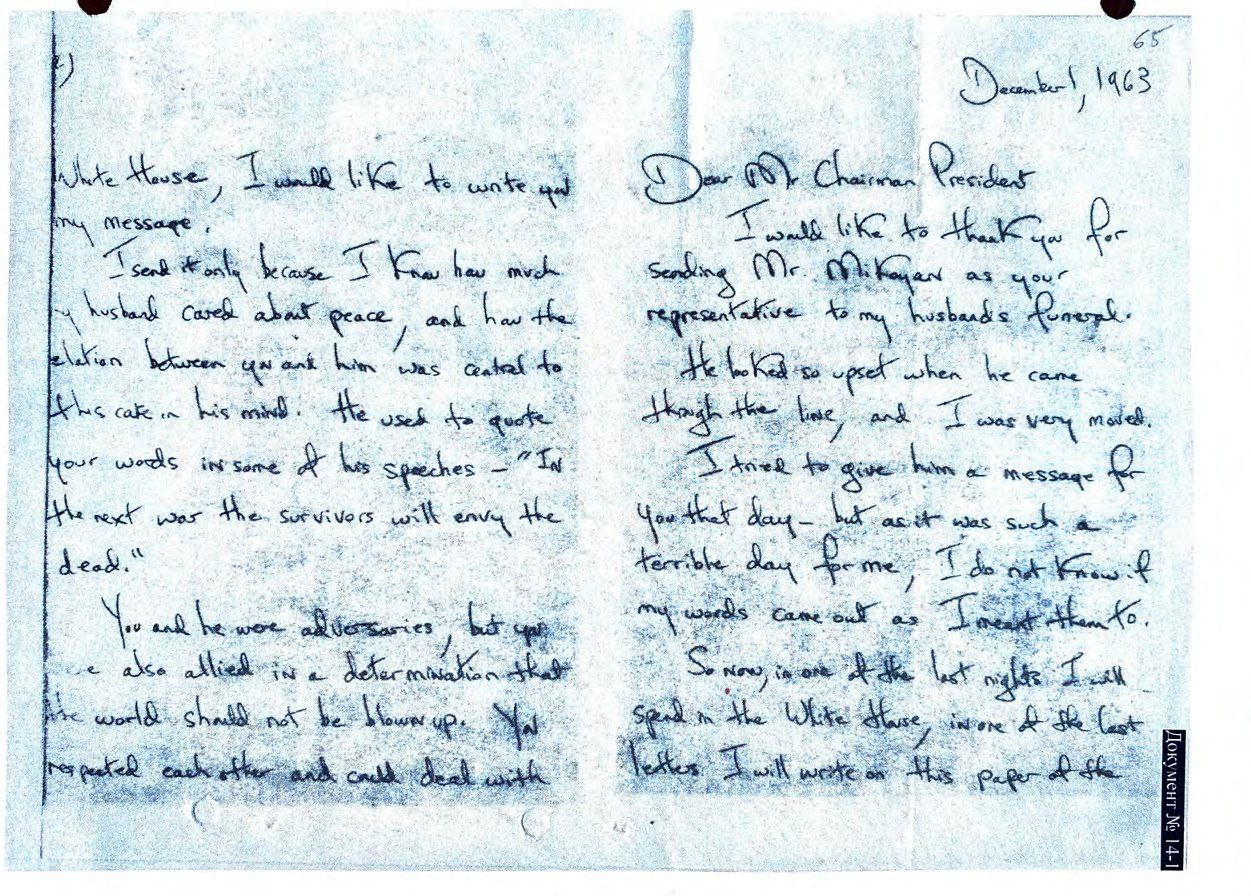 65
December 1, 1963
Dear Mr Chairman President
I would like to thank you for
sending Mr. Mikoyan as your
representative to my husband's funeral.
He looked so upset when he came
through the line, and I was very moved.
I tried to give him a message for
you that day – but as it was such a
terrible day for me, I do not know if
my words came out as I meant them to.
So now, in one of the last nights I will
spend in the White House, in one of the last
letters I will write on this paper of the
2)
White House, I would like to write you
my message.
I send it only because I know how much
y husband cared about peace, and how the
elation between you and him was central to
this care in his mind. He used to quote
your words in some of his speeches – "In
the next war the survivors will envy the
dead."
You and he were adversaries, but you
e also allied in a determination that
the world should not be blown up. You
respected each other and could deal with
Документ № 14-1